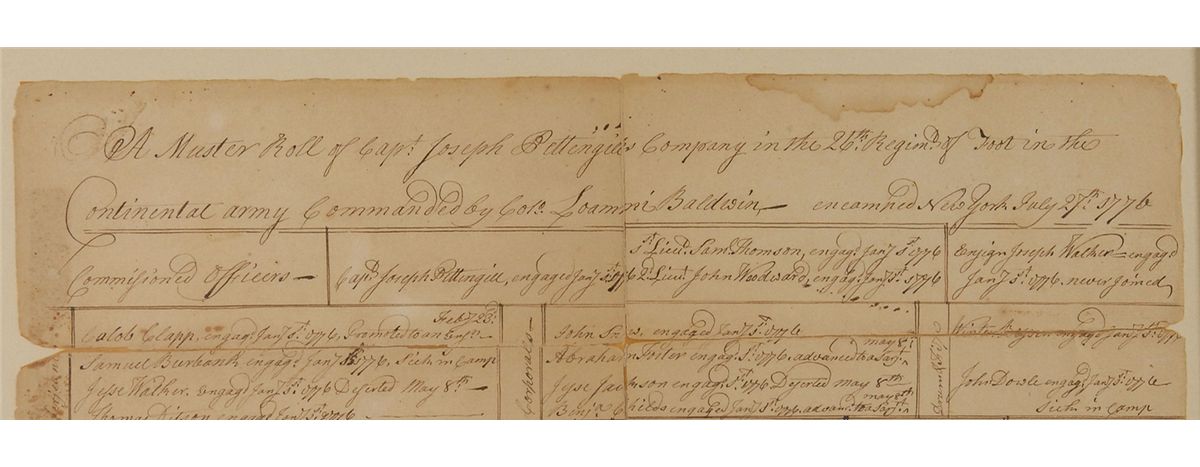 A Muster Roll of Capt. Joseph Pettingills Company in the 26th. Regimt. of Foot in the
Continental army Commanded by Colo. Loammi Baldwin encamped New York July 27th 1776
Commissioned Officers
Captn. Joseph Pettingill, engaged Jany. 1st 1776
1st Lieut. Sam. Thomson, engagd. Jany. 1st 1776
2d. Lieut. John Woodward, engagd. Jany. 1st. 1776
Ensign Joseph Walker engagd
Jany. 1st. 1776. never Joined
Serjeants
Feby. 23d.
Calob Clapp, engagd. Jany. 1st. 1776, Promoted to an Ensn.
Samuel Burbank engagd. Jany. 1st. 1776, Sick in Camp
Jesse Walker, engagd Jany. 1st 1776 Deserted May 8th
engagd Jany. 1st. 1776
Corporals
John engaged Jany. 1st. 1776
may 8th
Abraham Foster engagd. 1st. 1776, advanced to a Serjt.
Jesse Jackson engagd. 1st. 1776 Deserted may 8th
may 8th
engaged Jany. 1st. 1776. advanced to a Serjt.
engagd Jany. 1st.
John Dowle engagd. Jany. 1st. 1776
Sick in Camp